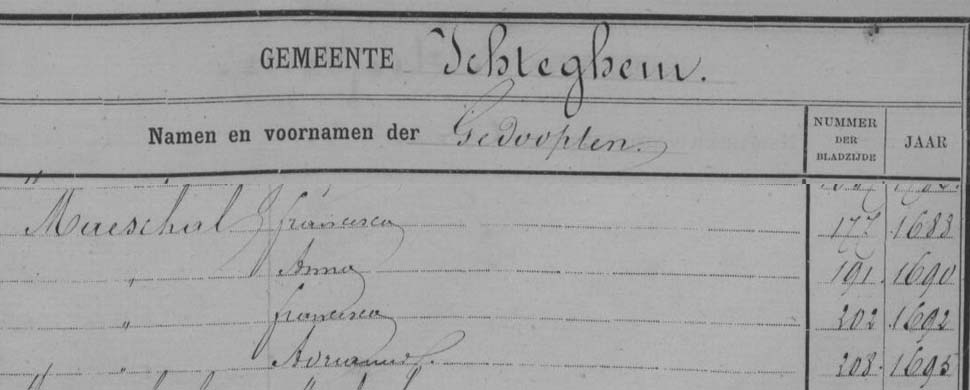 GEMEENTE Ichteghem.
Namen en voornamen der Gedoopten. NUMMER DER BLADZIJDE JAAR
"
Maeschal francisca 177 1688
" Anna 191 1690
" francisca 202 1692
" Adrianus 208 1695